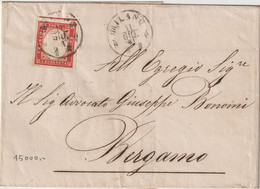 MILANO
All Egregio Sigre
Il Sig Avvocato Giuseppe Bonomi
Bergamo
15000,-